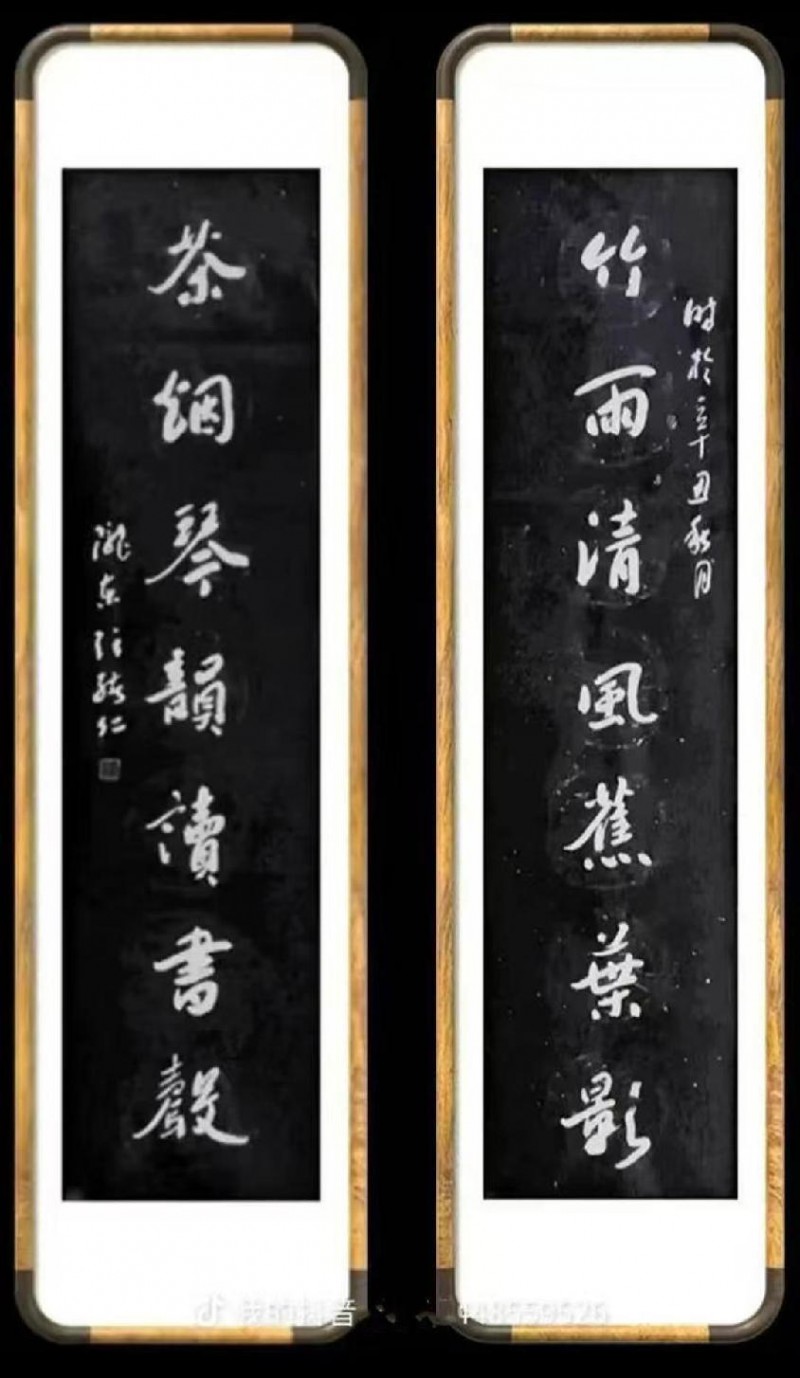 竹雨清風蕉葉影
時於辛丑秋月
茶烟琴韻讀書聲
隴東
仁
我的抖音
448559526